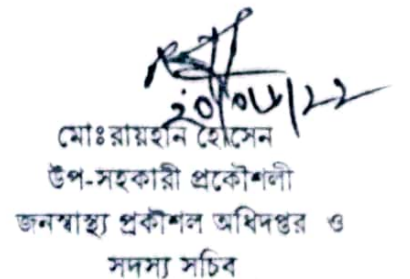 মোঃরায়হান হোসেন
উপ-সহকারী প্রকৌশলী
জনস্বাস্থ্য প্রকৌশল অধিদপ্তর ও
সদস্য সচিব